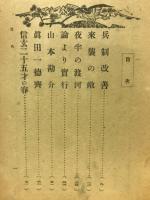 目次
兵制改善
來襲の敵
夜半の渡河
論より實行
山本勘介
眞田一德齊
信玄二十五才の春